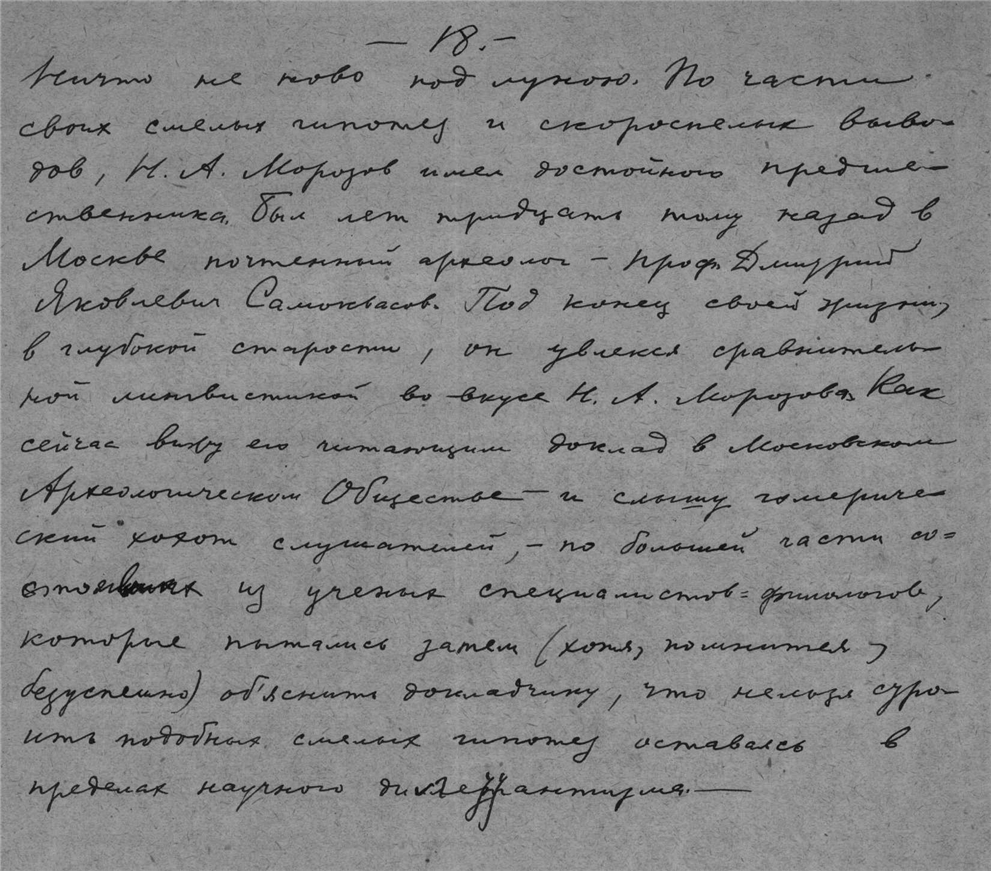 — 18. —
Ничто не ново под луною. По части
своих смелых гипотез и скороспелых выво-
дов, Н. А. Морозов имел достойного предше-
ственника. Был лет тридцать тому назад в
Москве почтенный археолог — проф. Дмитрий
Яковлевич Самоквасов. Под конец своей жизни,
в глубокой старости, он увлекся сравнитель-
ной лингвистикой во вкусе Н. А. Морозова. Как
сейчас вижу его читающим доклад в Московском
Археологическом Обществе — и слышу гомериче-
ский хохот слушателей, — по большей части со=
стоявших из ученых специалистов=филологов,
которые пытались затем (хотя, помнится,
безуспешно) об'яснить докладчику, что нельзя стро-
ить подобных смелых гипотез оставаясь в
пределах научного дилеттантизма. —